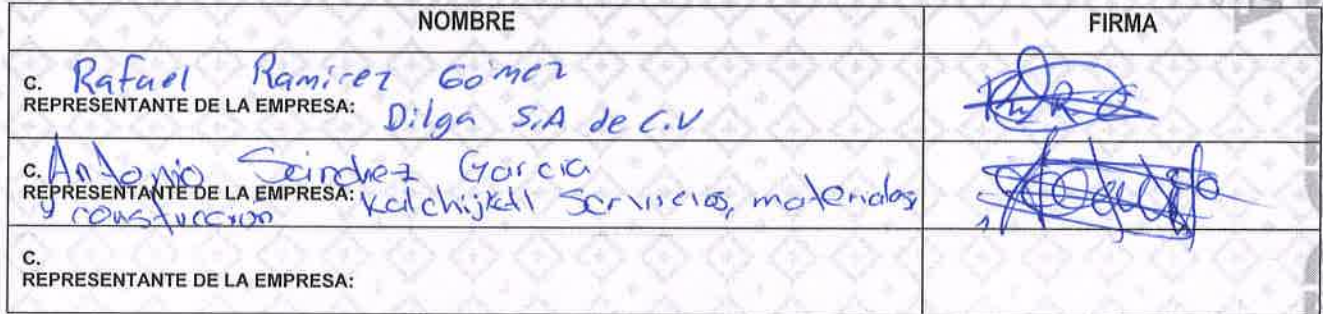 NOMBRE FIRMA
C. Rafael Ramirez Gómez
REPRESENTANTE DE LA EMPRESA: Dilga S.A de C.V
C. Antonio Sánchez García
REPRESENTANTE DE LA EMPRESA: Servicios, materiales,
y construccion
C.
REPRESENTANTE DE LA EMPRESA: